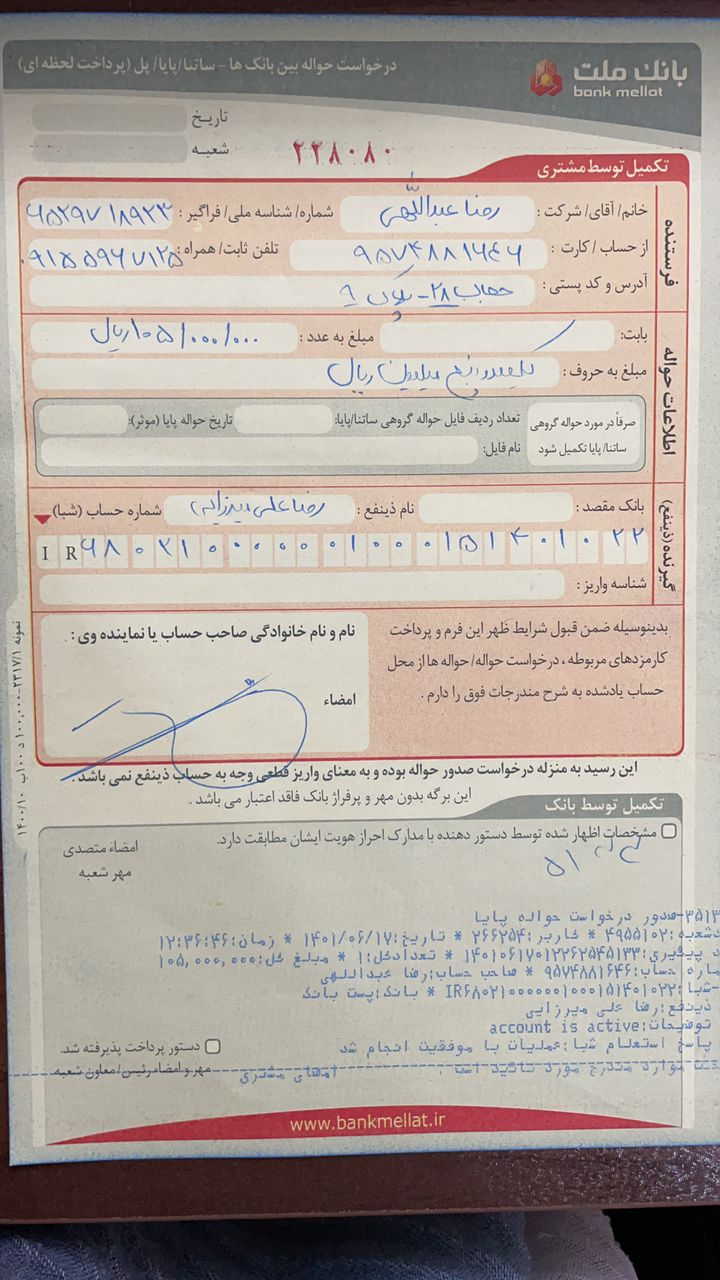 بانک ملت
bank mellat
درخواست حواله بین بانک ها - ساتنا/پایا/ پل (پرداخت لحظه ای)
تاریخ
شعبه
۲۲۸۰۸۰
تکمیل توسط مشتری
فرستنده
خانم/ آقای/ شرکت : رضا عبداللهی شماره/ شناسه ملی/ فراگیر :
از حساب / کارت : ۹۵۷۴۸۸۱۶۴۶ تلفن ثابت/ همراه : ۰۹۱۵۵۹۶۷۱۲۵
آدرس و کد پستی : حجاب ۲۸ - پلاک ۹
اطلاعات حواله
بابت: مبلغ به عدد : ۱۰۵/۰۰۰/۰۰۰ ریال
مبلغ به حروف : یکصد و پنج میلیون ریال
صرفاً در مورد حواله گروهی ساتنا/ پایا تکمیل شود
تعداد ردیف فایل حواله گروهی ساتنا/پایا: تاریخ حواله پایا (موثر):
نام فایل:
گیرنده (ذینفع)
بانک مقصد: نام ذینفع : رضا علی میرزایی شماره حساب (شبا)
IR ۶۸۰۲۱۰۰۰۰۰۰۱۰۰۰۱۵۱۴۰۱۰۲۲
شناسه واریز :
بدینوسیله ضمن قبول شرایط ظهر این فرم و پرداخت
کارمزدهای مربوطه ، درخواست حواله/ حواله ها از محل
حساب یادشده به شرح مندرجات فوق را دارم .
نام و نام خانوادگی صاحب حساب یا نماینده وی :
امضاء
این رسید به منزله درخواست صدور حواله بوده و به معنای واریز قطعی وجه به حساب ذینفع نمی باشد .
این برگه بدون مهر و پرفراژ بانک فاقد اعتبار می باشد .
نمونه ۲۳۱۷/۱-۱۰۰,۰۰۰ د ۱۰۰ب ۱۴۰۰/۱۰
تکمیل توسط بانک
مشخصات اظهار شده توسط دستور دهنده با مدارک احراز هویت ایشان مطابقت دارد.
امضاء متصدی
مهر شعبه
۳۵۱۳-صدور درخواست حواله پایا
شعبه:۴۹۵۵۱۰۲ * کاربر:۲۶۶۲۵۴ * تاریخ:۱۴۰۱/۰۶/۱۷ * زمان:۱۲:۳۶:۴۶
د پیگیری:۱۴۰۱۰۶۱۷۰۱۲۲۶۲۵۴۵۱۳۳ * تعدادکل:۱ * مبلغ کل:۱۰۵,۰۰۰,۰۰۰
ماره حساب:۹۵۷۴۸۸۱۶۴۶ * صاحب حساب:رضا عبداللهی
-شبا:IR۶۸۰۲۱۰۰۰۰۰۰۱۰۰۰۱۵۱۴۰۱۰۲۲ * بانک:پست بانک
ذینفع:رضا علی میرزایی
توضیحات:account is active
پاسخ استعلام شبا:عملیات با موفقیت انجام شد
موارد مندرج مورد تائید است . امضای مشتری
دستور پرداخت پذیرفته شد.
مهر و امضاء رئیس/ معاون شعبه
www.bankmellat.ir